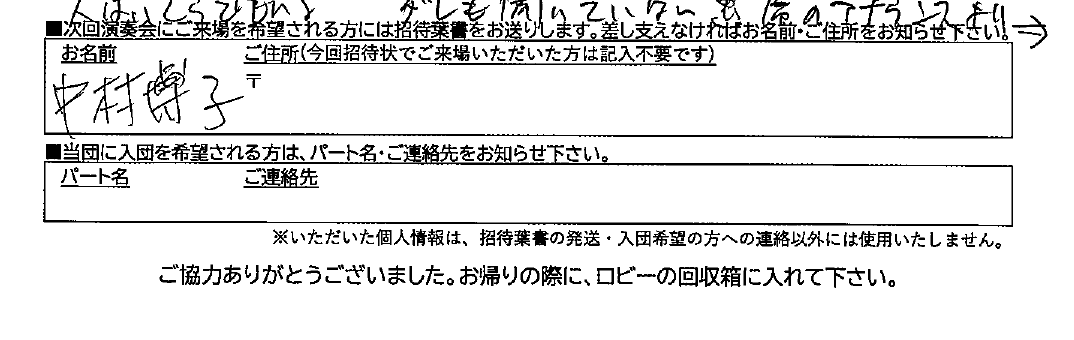 ■次回演奏会にご来場を希望される方には招待葉書をお送りします。差し支えなければお名前・ご住所をお知らせ下さい!→
お名前 ご住所(今回招待状でご来場いただいた方は記入不要です)
中村博子 〒
■当団に入団を希望される方は、パート名・ご連絡先をお知らせ下さい。
パート名 ご連絡先
※いただいた個人情報は、招待葉書の発送・入団希望の方への連絡以外には使用いたしません。
ご協力ありがとうございました。お帰りの際に、ロビーの回収箱に入れて下さい。